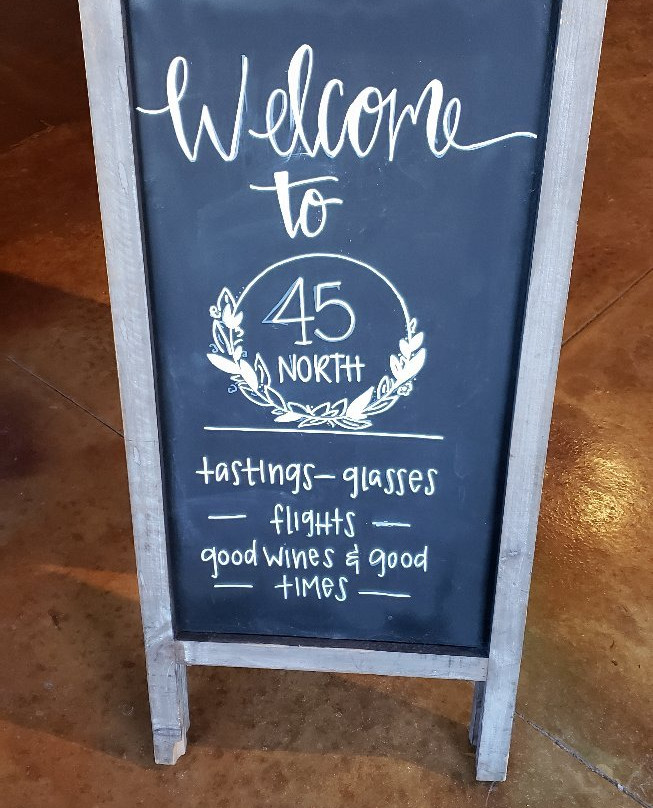 Welcome
to
45
NORTH
tastings- glasses
- flights -
good wines & good
- times -